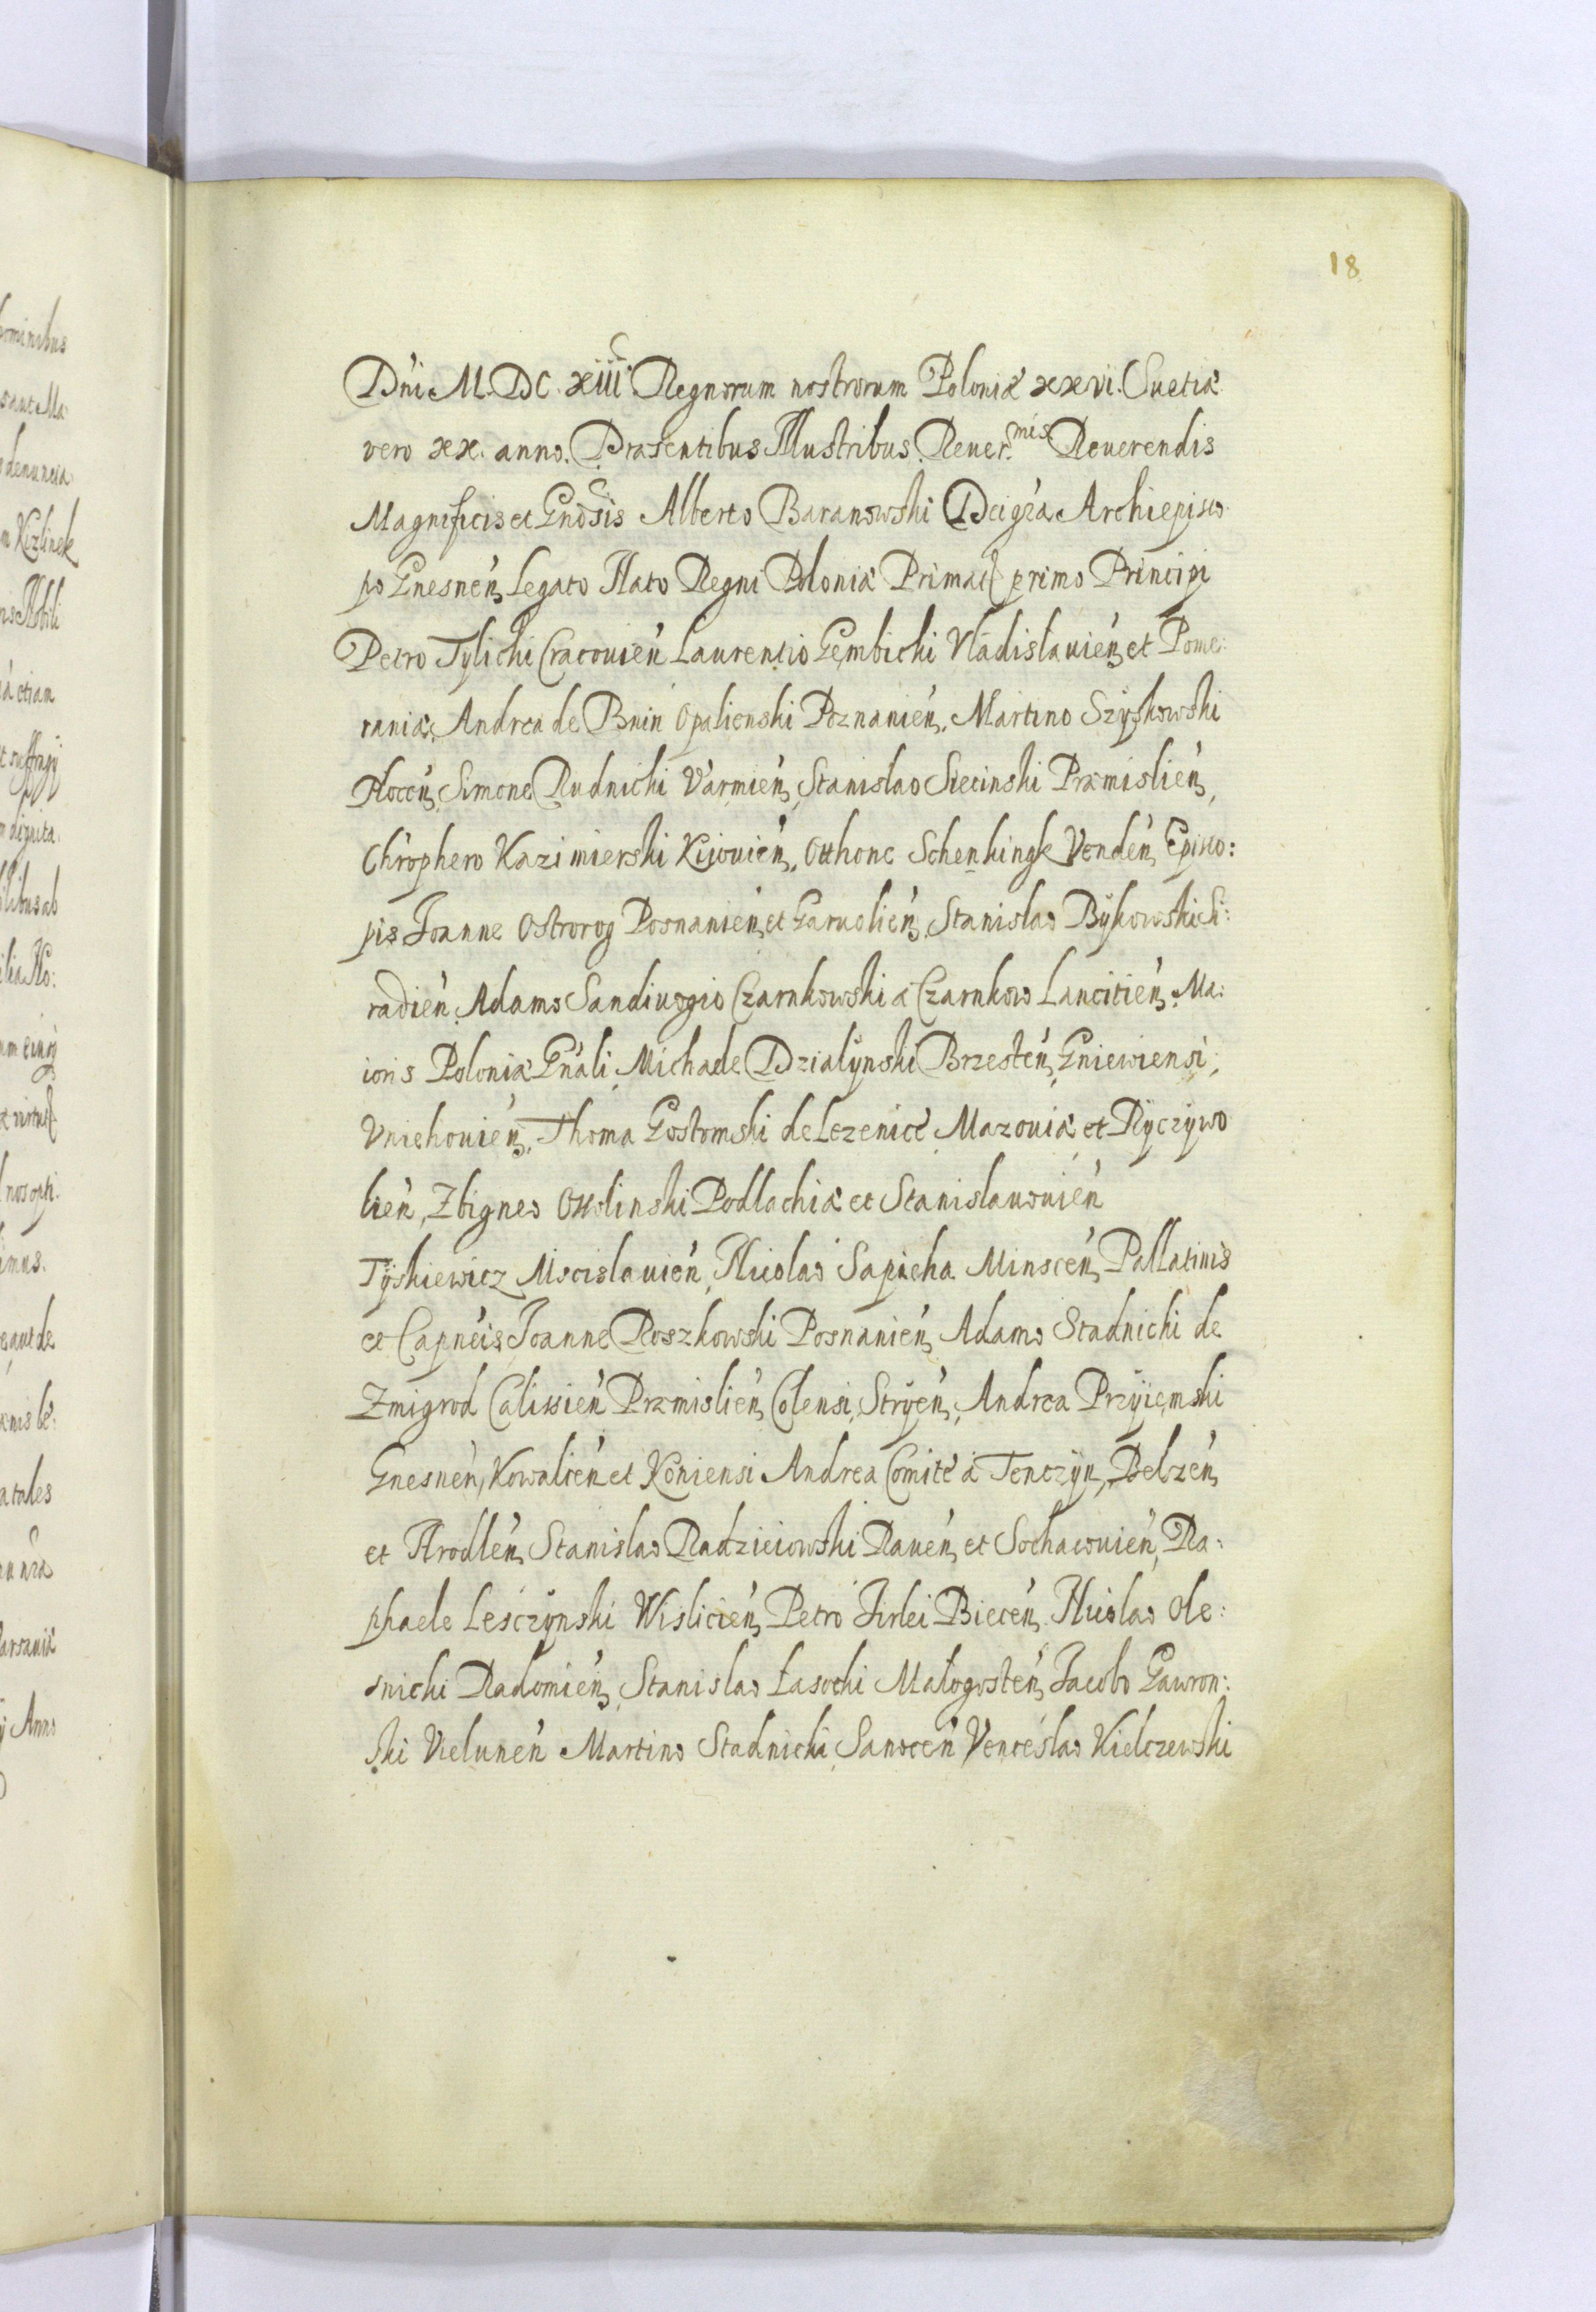 18
Dn̄i M.DC.xiii. Regnorum nostrorum Poloniæ xxvi. Suetiæ
vero xx. anno. Præsentibus Illustribus Reuer.mis Reuerendis
Magnificis et Gnōsis Alberto Baranowski Dei gr̄a Archiepisco
po Gnesnen̄, Legato Nato Regni Poloniæ Primate primo Principi
Petro Tylicki Cracouien̄ Laurentio Gembicki Vladislauien̄, et Pome:
raniæ, Andrea de Bnin Opalienski Poznanien̄, Martino Szyszkowski
Plocen̄, Simone Rudnicki Varmien̄, Stanislao Siecinski Præmislien̄,
Chr̄ophero Kazimierski Kijouien̄, Otthone Schenkingk Venden̄, Episco:
pis Joanne Ostrorog Posnanien̄, et Garuolien̄, Stanislao Bykowski Si:
radien̄, Adamo Sandiuogio Czarnkowski á Czarnkow Lancitien̄, Ma:
ioris Poloniæ Gn̄ali, Michaele Dzialynski Brzesten̄, Gniewiensi,
Vniehouien̄, Thoma Gostomski de Lezenice Mazouiæ et Ryczywo
lien̄, Zbigneo Ossolinski Podlachiæ et Stanislauouien̄
Tyskiewicz Mscislauien̄, Nicolao Sapieha Minscen̄, Pallatinis
et Capneis Joanne Roszkowski Posnanien̄, Adamo Stadnicki de
Zmigrod Calissien̄ Præmislien̄, Colensi, Stryen̄, Andrea Przyiemski
Gnesnen̄, Kowalien̄ et Koniensi Andrea Comite á Tenczyn, Belzen̄,
et Hrodlen̄, Stanislao Radzieiowski Rauen̄, et Sochaczouien̄, Ra:
phaele Lesczynski Wislicien̄, Petro Firlei Biecen̄, Nicolao Ole:
snicki Radomien̄, Stanislao Łasochi Małogosten̄, Jacobo Gawron:
ski Vielunen̄ Martino Stadnicki Sanocen̄ Venceslao Kielczewski